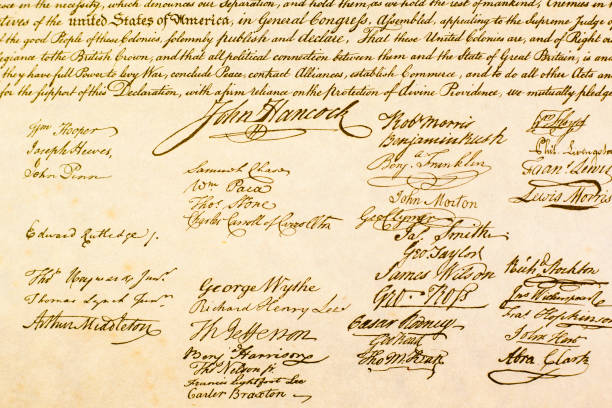 rest in the necessity, which denounces our Separation, and hold them, as we hold the rest of mankind, Enemies in
tives of the united States of America, in General Congress, Assembled, appealing to the Supreme Judge
of the good People of these Colonies, solemnly publish and declare, That these United Colonies are, and of Right ou
egiance to the British Crown, and that all political connection between them and the State of Great Britain, is an
they have full Power to levy War, conclude Peace, contract Alliances, establish Commerce, and to do all other Acts an
for the support of this Declaration, with a firm reliance on the protection of divine Providence, we mutually pledge
John Hancock
Wm Hooper
Joseph Hewes,
John Penn
Edward Rutledge /.
Thos Heyward Junr.
Thomas Lynch Junr.
Arthur Middleton
Samuel Chase
Wm Paca
Thos Stone
Charles Carroll of Carrollton
George Wythe
Richard Henry Lee
Th Jefferson
Benj Harrison
Thos Nelson jr.
Francis Lightfoot Lee
Carter Braxton
Robt Morris
Benjamin Rush
Benj. Franklin
John Morton
Geo Clymer
Jas. Smith
Geo. Taylor
James Wilson
Geo. Ross
Caesar Rodney
Geo Read
Tho M:Kean
Phil. Livingston
Frans. Lewis
Lewis Morris
Richd. Stockton
Jno Witherspoon
Fras. Hopkinson
John Hart
Abra Clark